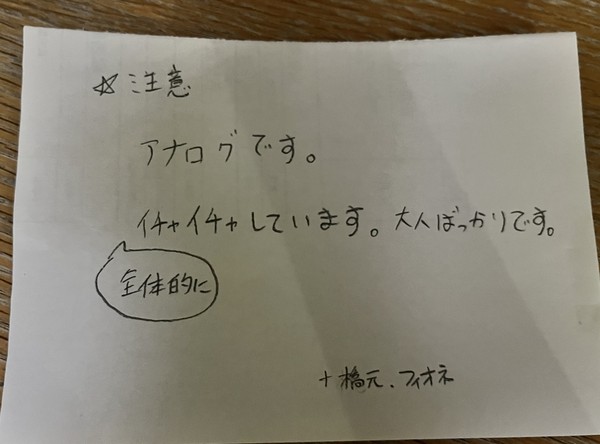 ☆注意
アナログです。
イチャイチャしています。大人ばっかりです。
全体的に
+橋元、フィオネ